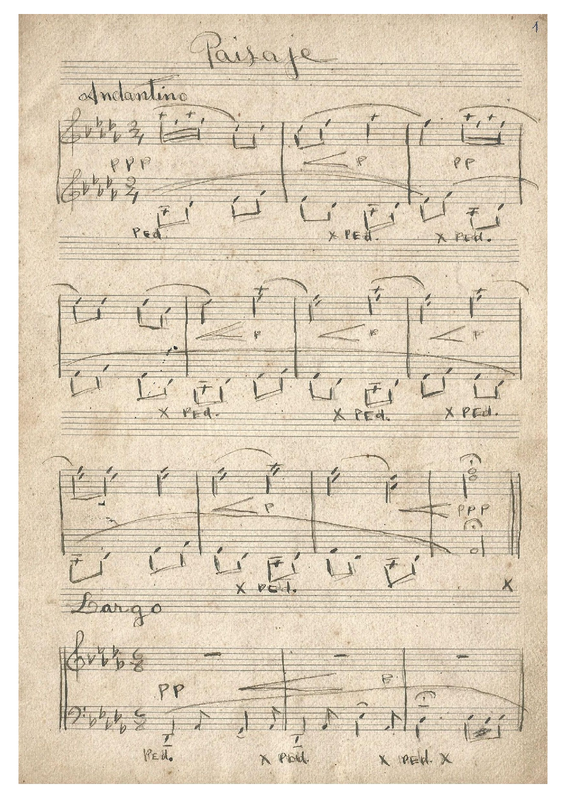 1
Paisaje
Andantino
PPP < P PP
PED. X PED. X PED.
< P < P < P
X PED. X PED. X PED.
< P < PPP
X PED. X
Largo
PP < P
PED. X PED. X PED. X